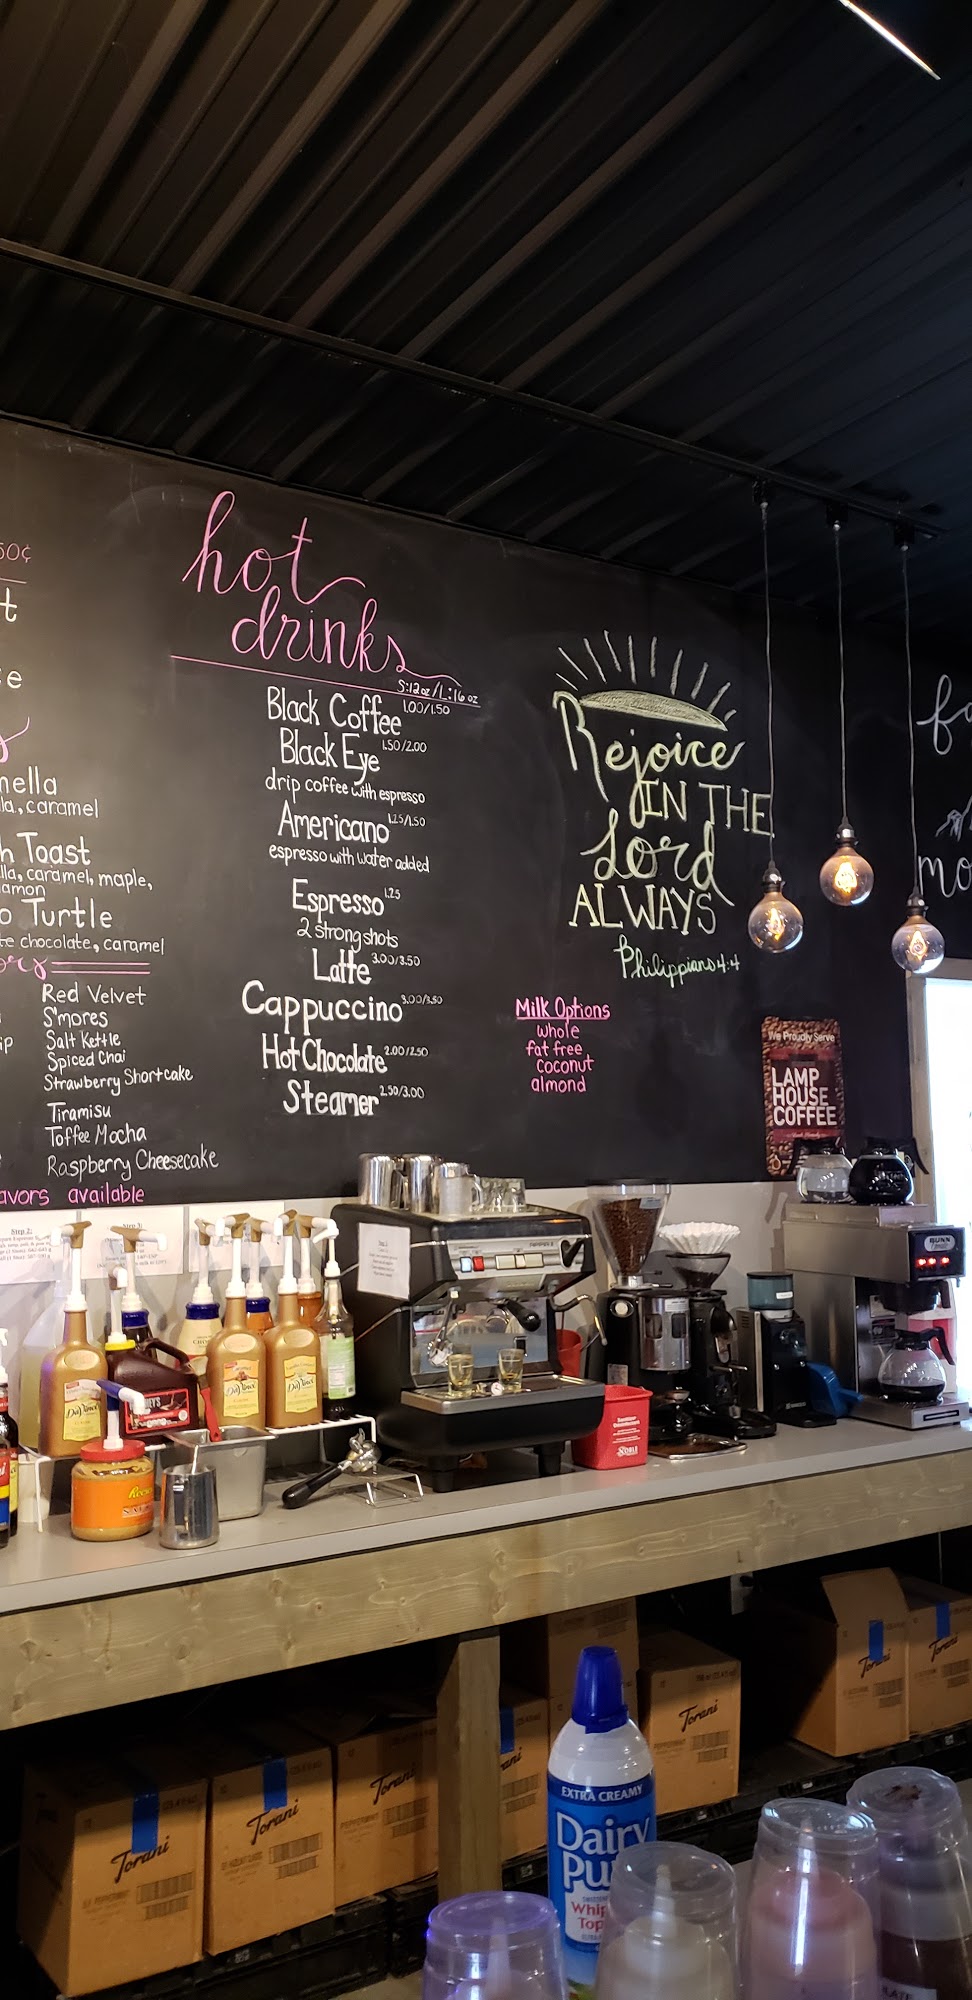 50¢
hot
drinks
S:12oz/L:16oz
Black Coffee 1.00/1.50
Black Eye 1.50/2.00
drip coffee with espresso
Americano 1.25/1.50
espresso with water added
Espresso 1.25
2 strong shots
Latte 3.00/3.50
Cappuccino 3.00/3.50
Hot Chocolate 2.00/2.50
Steamer 2.50/3.00
Rejoice
IN THE
Lord
ALWAYS
Philippians 4:4
Milk Options
whole
fat free
coconut
almond
caramel
Toast
caramel, maple,
Turtle
chocolate, caramel
Red Velvet
S'mores
Salt Kettle
Spiced Chai
Strawberry Shortcake
Tiramisu
Toffee Mocha
Raspberry Cheesecake
available
We Proudly Serve
LAMP
HOUSE
COFFEE
Step 2:
Step 3:
BUNN
DaVinci
DaVinci
DaVinci
Reese's
NOBLE
Torani
Torani
Torani
Torani
Torani
Torani
Torani
EXTRA CREAMY
Dairy
Whip